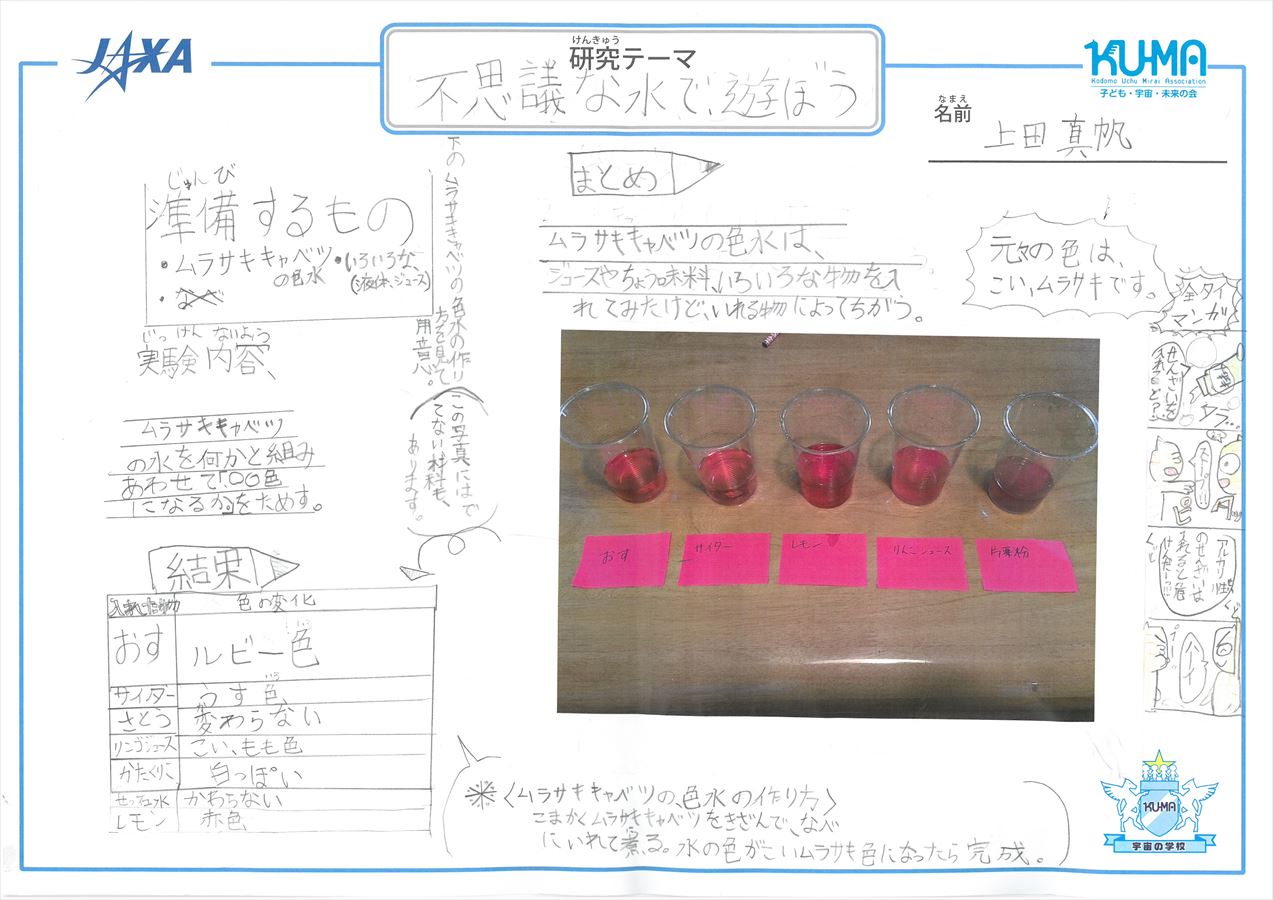 JAXA
けんきゅう
研究テーマ
不思議な水で、遊ぼう
KUMA
Kodomo Uchu Mirai Association
子ども・宇宙・未来の会
なまえ
名前
上田真帆
じゅんび
準備するもの
・ムラサキキャベツの色水
・いろいろな、(液体、ジュース)
下のムラサキキャベツの色水の作り
方を見て
用意。
じっけん ないよう
実験内容、
ムラサキキャベツ
の水を何かと組み
あわせて「何色
になるか」をためす。
この写真にはで
てない材料も、
あります。
結果
入れた物
色の変化
おす
ルビー色
サイダー
うす色
さとう
変わらない
リンゴジュース
こい、もも色
かたくりこ
白っぽい
せっけん水
かわらない
レモン
赤色
まとめ
ムラサキキャベツの色水は、
ジュースやちょう味料、いろいろな物を入
れてみたけど、いれる物によってちがう。
元々の色は、
こい、ムラサキです。
おす
サイダー
レモン
りんごジュース
片栗粉
全タイ
マンガ
せんざいを
入れると?
ストップ!!
ピタッ
アルカリ性
のせんざいは
入れると危
けんだー!!!
ハーイ
※〈ムラサキキャベツの、色水の作り方〉
こまかくムラサキキャベツをきざんで、なべ
にいれて煮る。水の色がこいムラサキ色になったら完成。
KUMA
宇宙の学校